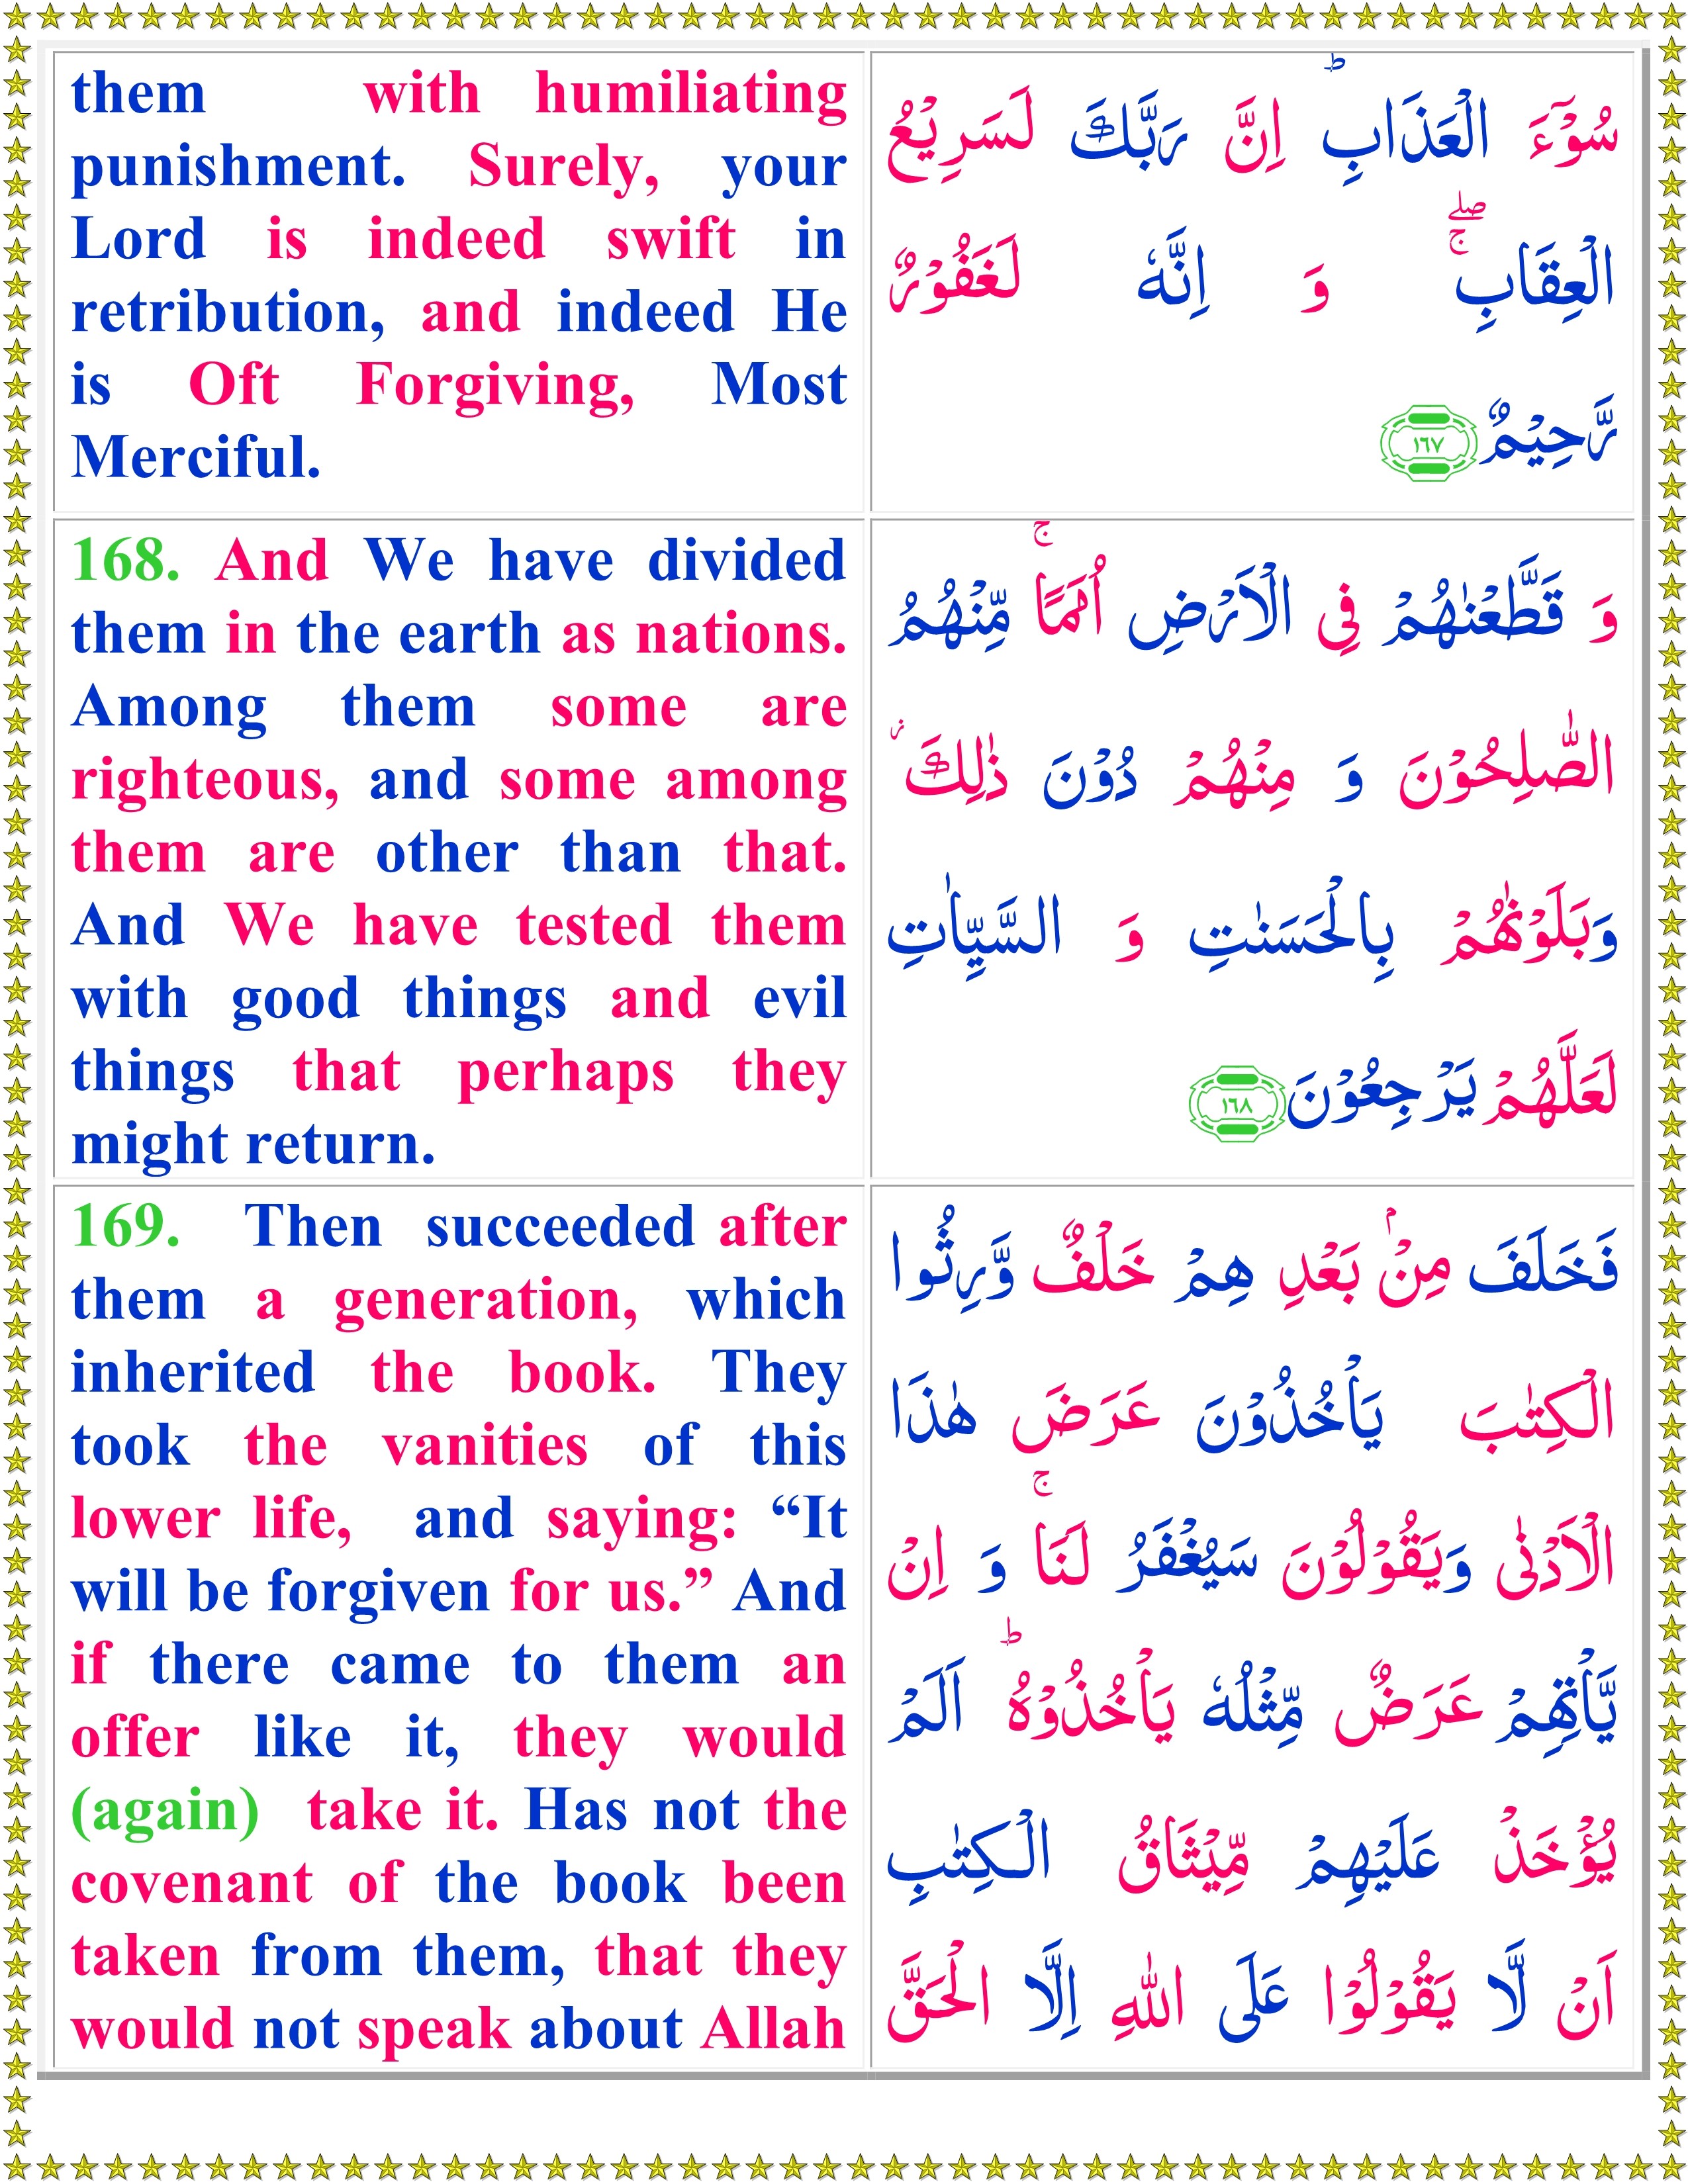 them with humiliating
punishment. Surely, your
Lord is indeed swift in
retribution, and indeed He
is Oft Forgiving, Most
Merciful.
سُوْٓءَ الْعَذَابِ ؕ اِنَّ رَبَّكَ لَسَرِيْعُ
الْعِقَابِ ۖۚ وَ اِنَّهٗ لَغَفُوْرٌ
رَّحِيْمٌ ١٦٧
168. And We have divided
them in the earth as nations.
Among them some are
righteous, and some among
them are other than that.
And We have tested them
with good things and evil
things that perhaps they
might return.
وَ قَطَّعْنٰهُمْ فِى الْاَرْضِ اُمَمًا ۚ مِّنْهُمُ
الصّٰلِحُوْنَ وَ مِنْهُمْ دُوْنَ ذٰلِكَ ؗ
وَبَلَوْنٰهُمْ بِالْحَسَنٰتِ وَ السَّيِّاٰتِ
لَعَلَّهُمْ يَرْجِعُوْنَ ١٦٨
169. Then succeeded after
them a generation, which
inherited the book. They
took the vanities of this
lower life, and saying: “It
will be forgiven for us.” And
if there came to them an
offer like it, they would
(again) take it. Has not the
covenant of the book been
taken from them, that they
would not speak about Allah
فَخَلَفَ مِنْۢ بَعْدِ هِمْ خَلْفٌ وَّرِثُوا
الْكِتٰبَ يَاْخُذُوْنَ عَرَضَ هٰذَا
الْاَدْنٰى وَيَقُوْلُوْنَ سَيُغْفَرُ لَنَا ۚ وَ اِنْ
يَّاْتِهِمْ عَرَضٌ مِّثْلُهٗ يَاْخُذُوْهُ ؕ اَلَمْ
يُؤْخَذْ عَلَيْهِمْ مِّيْثَاقُ الْكِتٰبِ
اَنْ لَّا يَقُوْلُوْا عَلَى اللهِ اِلَّا الْحَقَّ